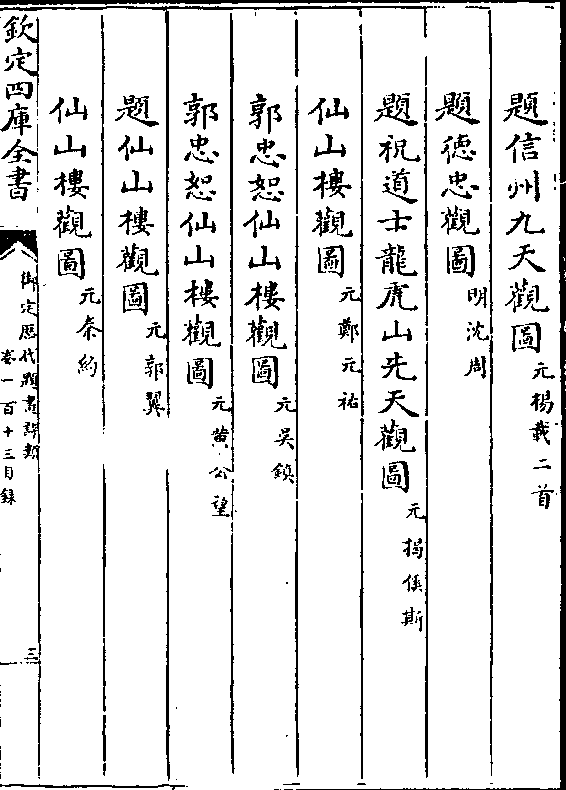 題信州九天觀圖元楊載二首
題德忠觀圖明沈周
題祝道士龍虎山先天觀圖元揭傒斯
仙山樓觀圖元鄭元祐
郭忠恕仙山樓觀圖元吳鎮
郭忠恕仙山樓觀圖元黃公望
題仙山樓觀圖元郭翼
仙山樓觀圖元秦約
欽定四庫全書
御定歷代題畫詩類
卷一百十三目錄
三